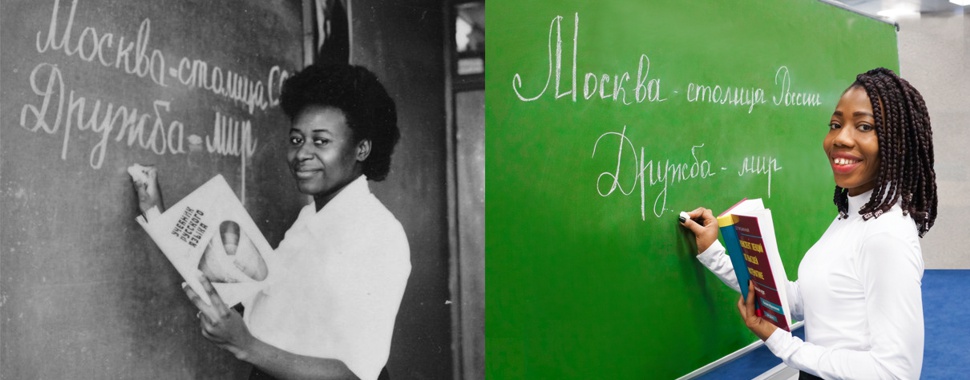 Москва - столица СС
Дружба - мир
УЧЕБНИК
РУССКОГО
ЯЗЫКА
Москва - столица России
Дружба - мир